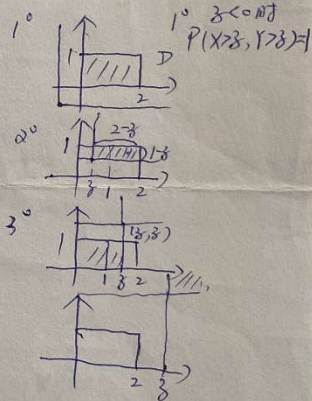 1° 1 D 2
1° z<0时
P(X>z, Y>z)=1
2° 1 2-z 1-z
z 1 2
3° 1 (z,z)
1 z 2
2 z